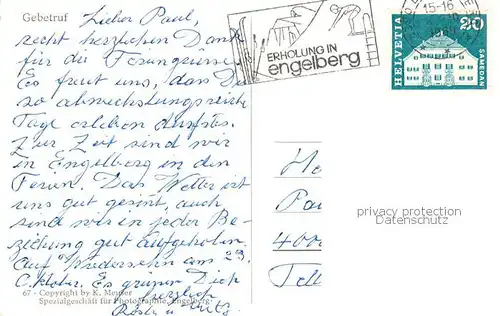 Gebetruf
Lieber Paul,
recht herzlichen Dank
für die Feriengrüsse.
Es freut uns, dass Du
so abwechslungsreiche
Tage erleben durftest.
Zur Zeit sind wir
in Engelberg in den
Ferien. Das Wetter ist
uns gut gesinnt, auch
sind wir in jeder Be-
ziehung gut aufgehoben.
Auf Wiedersehn am 23.
Oktober. Es grüssen Dich
herzlich
67 - Copyright by K. Meuser
Spezialgeschäft für Photographie, Engelberg
ERHOLUNG IN
engelberg
15-16
HELVETIA
20
SAMEDAN
He
Pau
400
Tell
privacy protection
Datenschutz